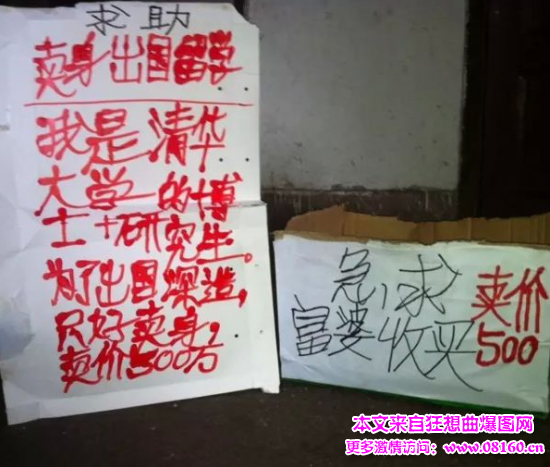 求助
卖身出国留学
我是清华
大学的博
士+研究生。
为了出国深造,
只好卖身,
卖价500万
急求
富婆收买
卖价
500
本文来自狂想曲爆图网
更多激情访问:www.08160.cn